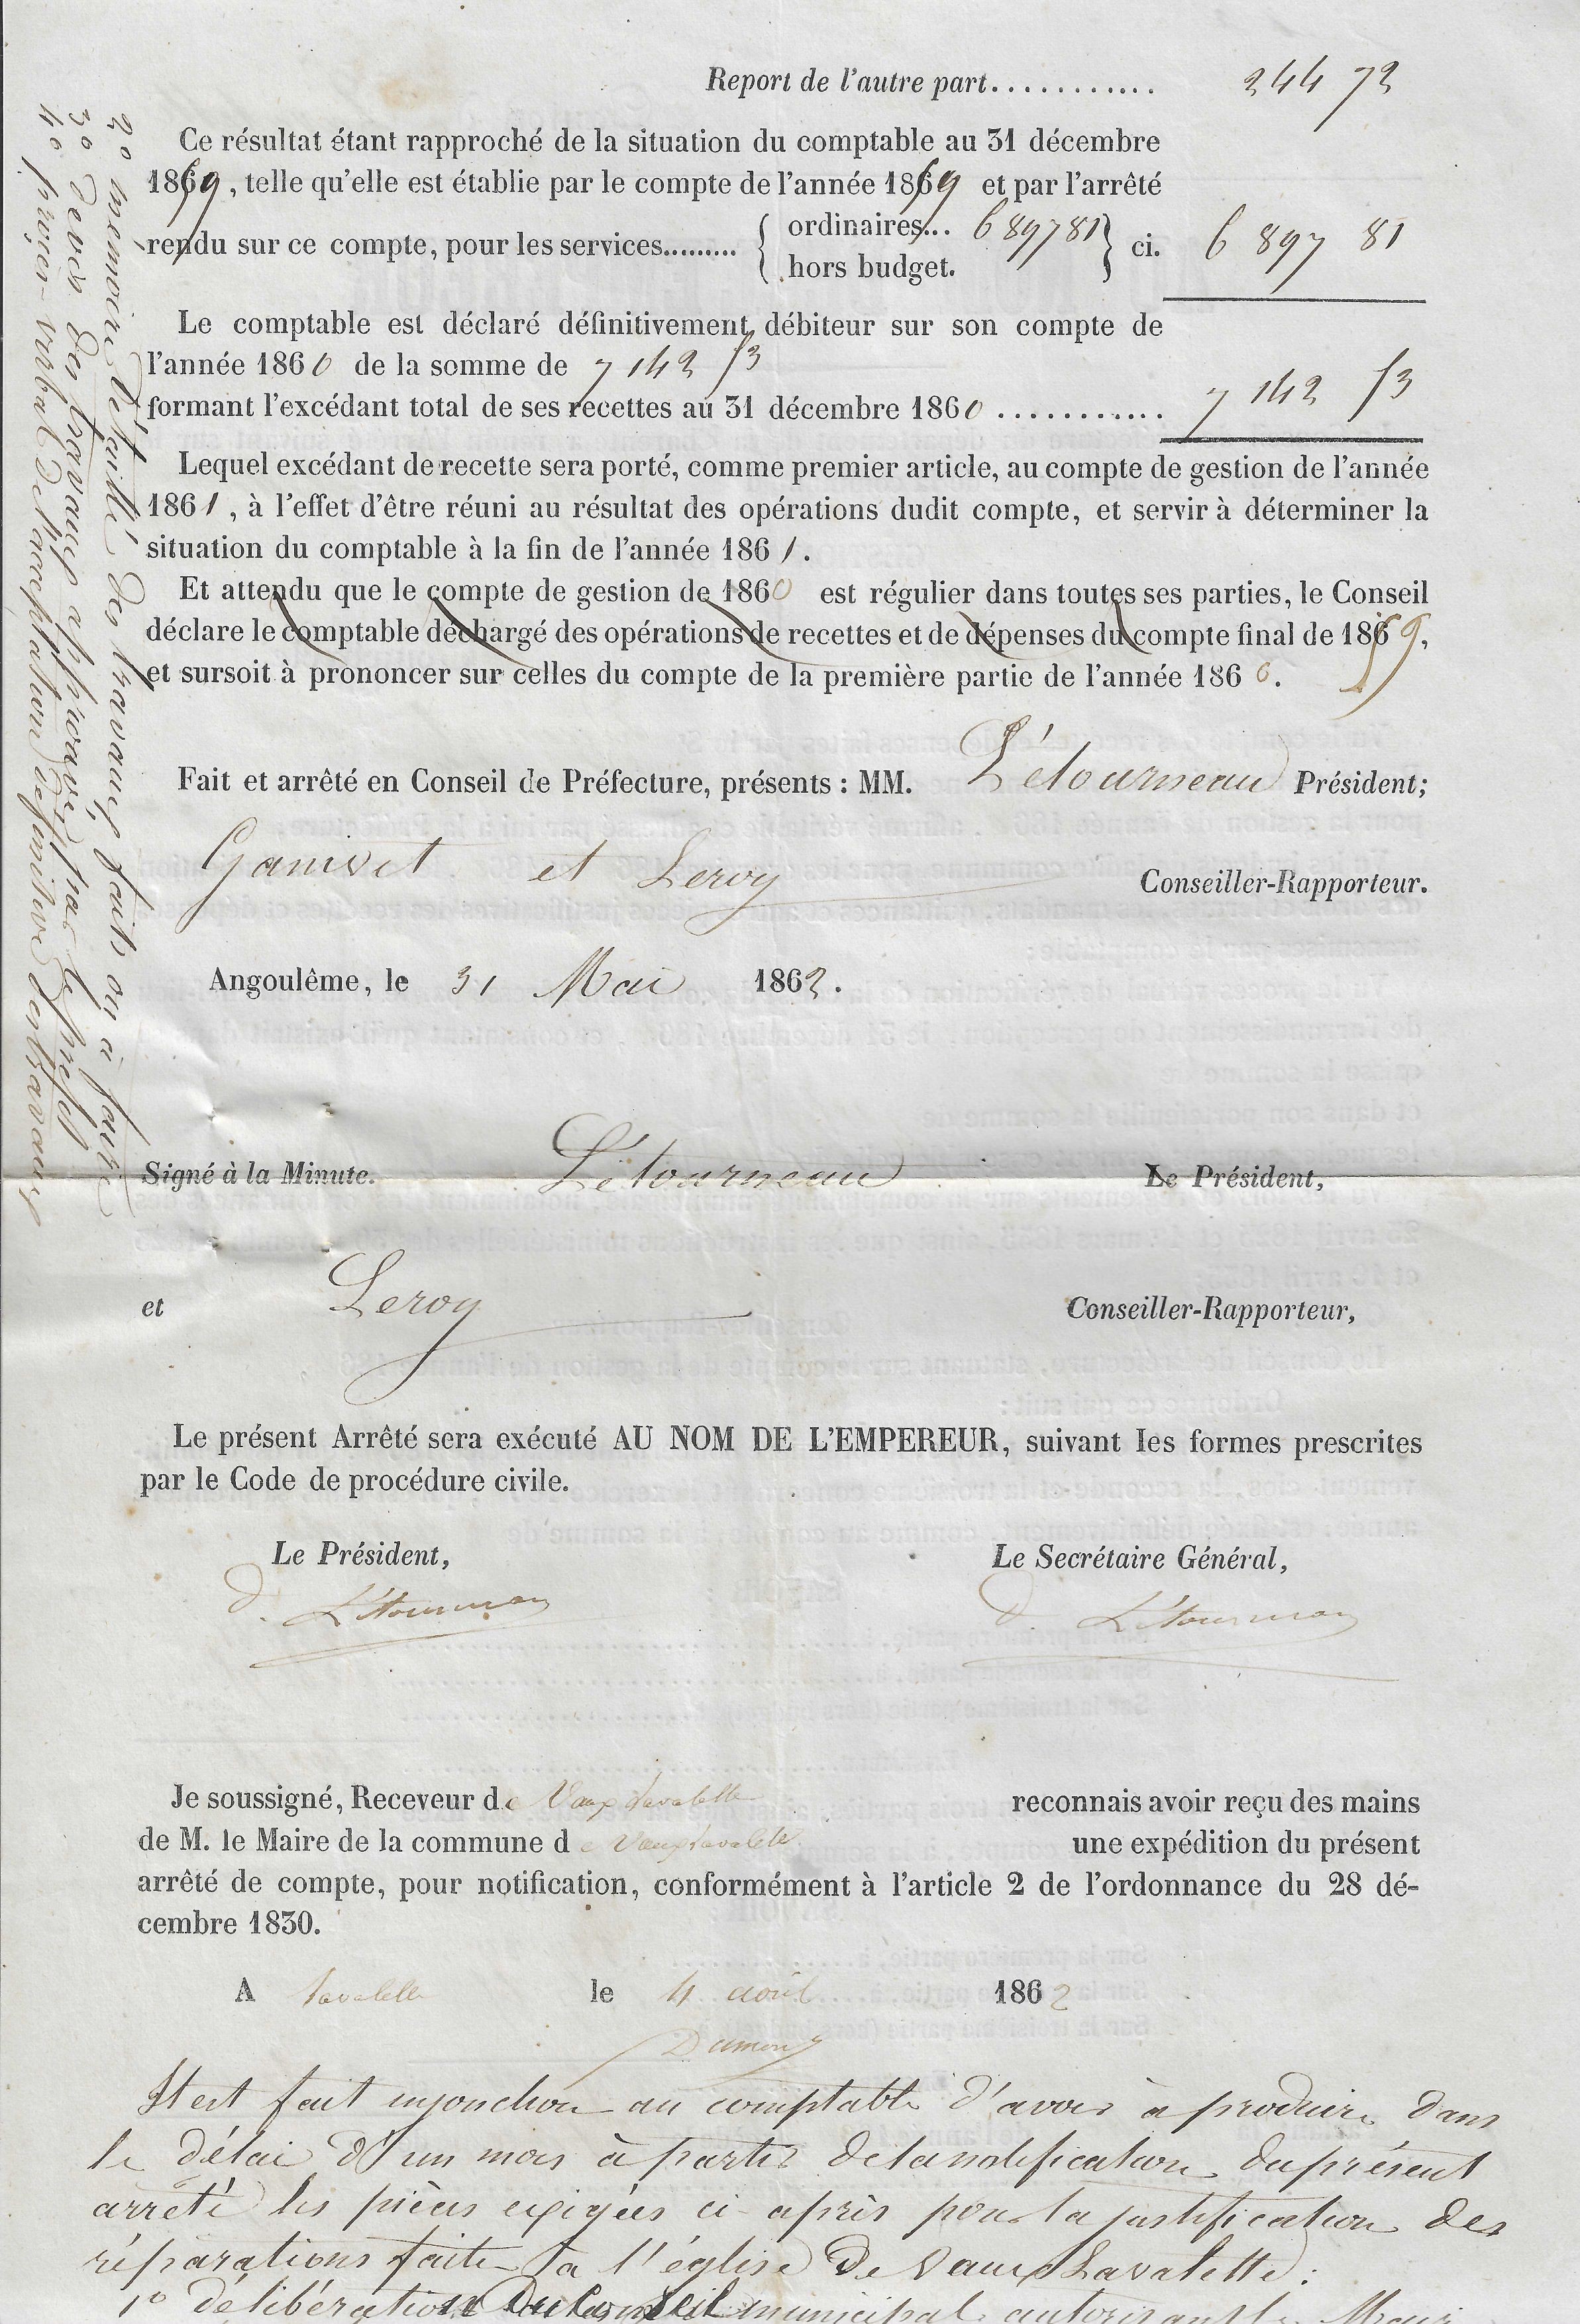 Report de l'autre part............ 244 72
Ce résultat étant rapproché de la situation du comptable au 31 décembre
1859, telle qu'elle est établie par le compte de l'année 1859 et par l'arrêté
rendu sur ce compte, pour les services......... { ordinaires... 6 897 81 } ci. 6 897 81
hors budget.
Le comptable est déclaré définitivement débiteur sur son compte de
l'année 1860 de la somme de 7 142 53
formant l'excédant total de ses recettes au 31 décembre 1860 ........... 7 142 53
Lequel excédant de recette sera porté, comme premier article, au compte de gestion de l'année
1861, à l'effet d'être réuni au résultat des opérations dudit compte, et servir à déterminer la
situation du comptable à la fin de l'année 1861.
Et attendu que le compte de gestion de 1860 est régulier dans toutes ses parties, le Conseil
déclare le comptable déchargé des opérations de recettes et de dépenses du compte final de 1859,
et sursoit à prononcer sur celles du compte de la première partie de l'année 1860.
Fait et arrêté en Conseil de Préfecture, présents : MM. Létourneau Président;
Ganivet et Leroy Conseiller-Rapporteur.
Angoulême, le 31 Mai 1862.
Signé à la Minute. Létourneau Le Président,
et Leroy Conseiller-Rapporteur,
Le présent Arrêté sera exécuté AU NOM DE L'EMPEREUR, suivant les formes prescrites
par le Code de procédure civile.
Le Président, Le Secrétaire Général,
D. Létourneau D. Létourneau
Je soussigné, Receveur de Vaux Lavalette reconnais avoir reçu des mains
de M. le Maire de la commune de Vaux Lavalette une expédition du présent
arrêté de compte, pour notification, conformément à l'article 2 de l'ordonnance du 28 dé-
cembre 1830.
A Lavalette le 4 août 1862
Il est fait injonction au comptable d'avoir à produire dans
le délai d'un mois à partir de la notification du présent
arrêté les pièces exigées ci après pour la justification des
réparations faites à l'église de Vaux Lavalette :
1° délibération du Conseil municipal autorisant le Maire
2° mémoire détaillé des travaux faits ou à faire
3° devis des travaux approuvé par le préfet
4° procès-verbal d'acceptation définitive des travaux